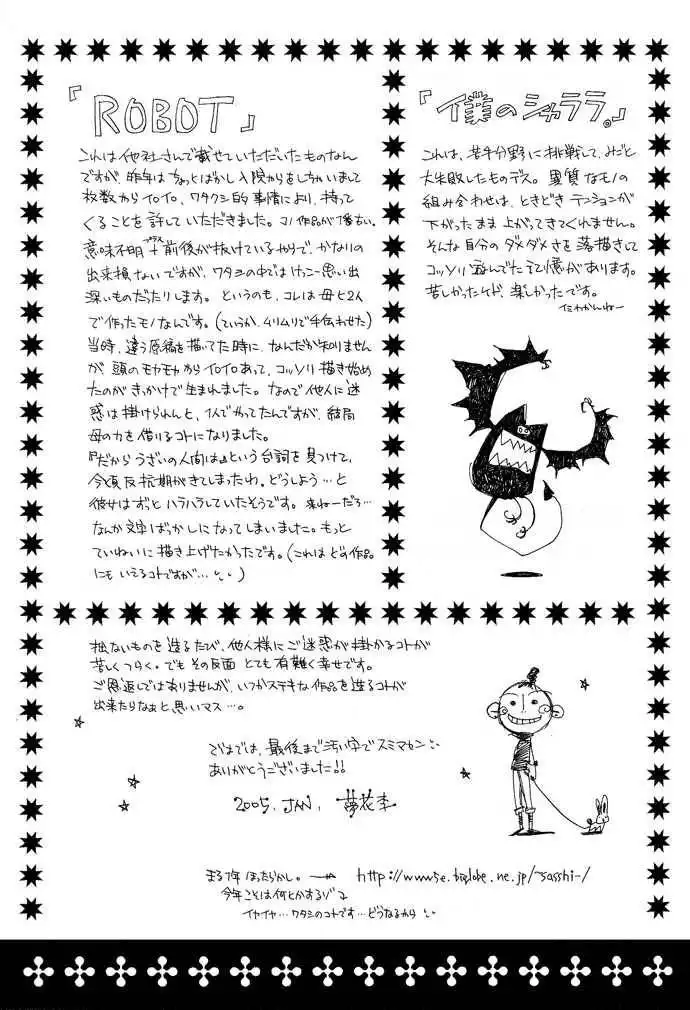 『ROBOT』
これは他社さんで載せていただいたものなん
ですが、昨年はちょっとばかし入院からをしちゃいまして
枚数からイロイロ、ワタクシ的事情により、持って
くることを許していただきました。コノ作品が1番古い。
意味不明プラス前後が抜けているからで、かなりの
出来損ないですが、ワタシの中ではけっこー思い出
深いものだたりします。というのも、コレは母と2人
で作ったモノなんです。(ていうか、ムリムリで手伝わせた)
当時、違う原稿を描いてた時に、なんだか知りません
が、頭のモヤモヤからイロイロあって、コッソリ描き始め
たのがきっかけで生まれました。なので他人に迷
惑は掛けられんと、1人でやってたんですが、結局
母の力を借りるコトになりました。
『だからうざいの人間は』という台詞を見つけて、
今頃反抗期がきてしまったわ。どうしよう…と
彼女はずっとハラハラしていたそうです。来ねーだろ…
なんか文章ばっかしになってしまいました。もっと
ていねいに描き上げたかったです。(これはどの作品
にもいえるコトですが…)
『僕のシャララ。』
これは、若干分野に挑戦して、みごと
大失敗したものデス。異質なモノの
組み合わせは、ときどきテンションが
下がったまま上がってきてくれません。
そんな自分のダメダメさを落描きして
コッソリ遊んでた記憶があります。
苦しかったケド、楽しかったです。
イミわかんねー
拙ないものを造るたび、他人様にご迷惑が掛かるコトが
苦しくつらく。でもその反面とても有難く幸せです。
ご恩返しではありませんが、いつかステキな作品を造るコトが
出来たらなぁと思いマス…。
ではでは、最後まで汚い字でスミマセン
ありがとうございました!!
2005. JAN.
まる1年ほったらかし。 → http://www5e.biglobe.ne.jp/~sasshi-/
今年こそは何とかするゾ
イヤイヤ…ワタシのコトです…どうなるかっ